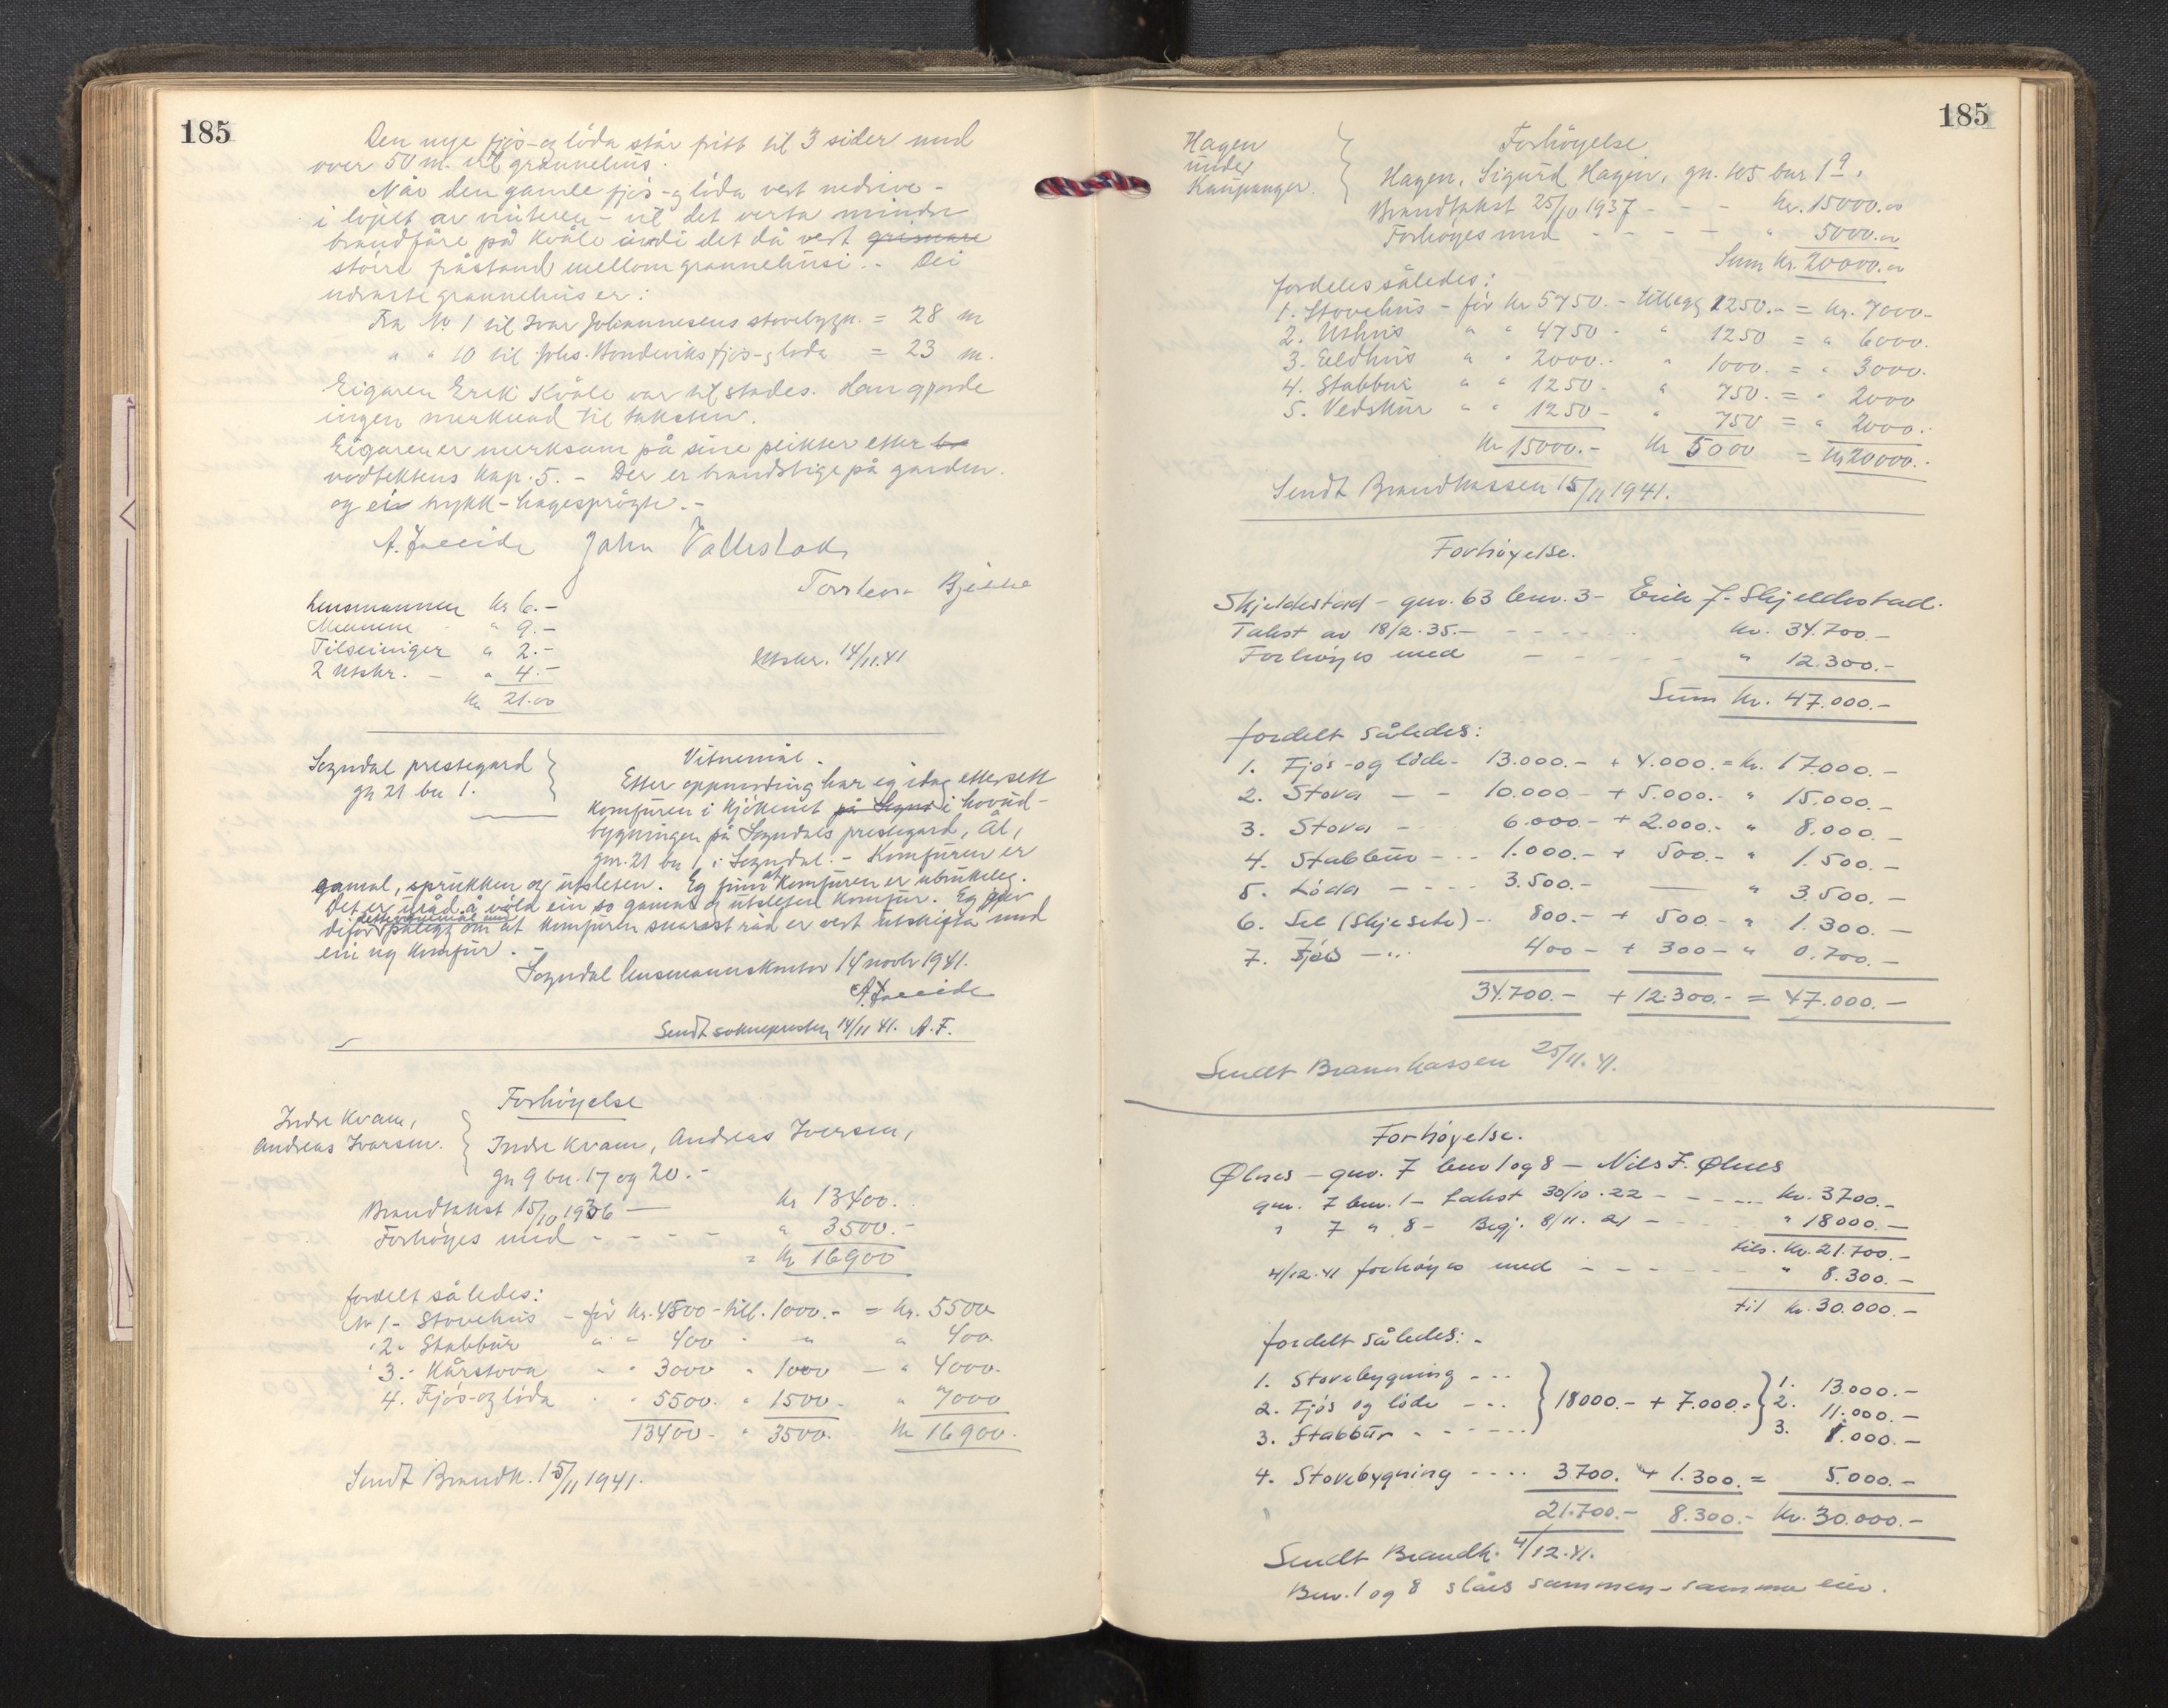 185
Den nye fjös- og löda står fritt til 3 sider med
over 50 m. til grannehus.
Når den gamle fjös- og löda vert nedrive -
i löpet av vinteren - vil det verta mindre
brandfåre på Kvåle då det då vert grismare
störri påstand mellom grannehusi. - Dei
næraste grannehus er:
Fra Nr 1 til Ivar Johannesens stovebygn. = 28 m
" " 10 til Johs. Hondeviks fjös- og löda = 23 m.
Eigaren Erik Kvåle var til stades. Han gjorde
ingen merknad til taksten.
Eigaren er merksam på sine plikter etter
vedtektens kap. 5. - Der er brandstige på garden.
og ei trykk-hagespröyte. -
John Vallestad
Lensmannen kr 6.-
Mennene " 9.-
Tilseiinger " 2.-
2 Utskr. - " 4.-
Kr 21.00
Utskr. 14/11.41
Sogndal prestegard
gn 21 bn 1.
Vitnemål.
Etter oppmoding har eg idag ettersett
komfüren i kjökenet på Sognd i hovud-
bygningen på Sogndals prestegard, Ål,
gnr. 21 bn 1, i Sogndal. - Komfüren er
gamal, sprukken og utsleten. Eg finn at komfüren er ubrukeleg.
Det er uråd å völa ein so gamal og utsleten komfür. Eg gjev
difor dette vitnemål um pålegg om at komfüren snarast råd er vert utskifta med
ein ny komfür. -
Sogndal lensmannskontor 14 novbr 1941.
Sendt soknepresten 14/11 41. A.F.
Indre Kvam,
Andreas Ivarsen.
Forhöyelse
Indre Kvam, Andreas Iversen,
gn 9 bn. 17 og 20.-
Brandtakst 15/10 1936 - kr 13400.
Forhöyes med - - - - " 3500.-
= Kr 16900
fordelt således:
Nr 1- Stovehus - för kr. 4500 - till. 1000.- = kr. 5500
" 2- Stabbur " " 400 - " " 400.
" 3.- Kårstova " " 3000 " 1000 - " 4000.
4. Fjös- og löda " " 5500. " 1500.- " 7000
13400.- " 3500.- Kr 16900.
Sendt Brandk. 15/11 1941.
185
Hagen
under
Kaupanger.
Forhöyelse
Hagen, Sigurd Hagen, gn. 105 bnr 19.
Brandtakst 25/10 1937 - - - kr. 15000.00
Forhöyes med - - - - " 5000.00
Sum kr. 20000.00
fordeles således:
1. Stovehus - för kr 5750.- tillegg 1250.- = kr. 7000-
2. Uthus " " 4750 - " 1250 = " 6000.
3. Eeldhus " " 2000.- " 1000. = " 3000.
4. Stabbur " " 1250.- " 750. = " 2000
5. Vedskur " " 1250- " 750 = " 2000.-
Kr 15000.- Kr 5000 = Kr 20000.-
Sendt Brandkassen 15/11 1941.
Forhöyelse.
Skjeldestad - gnr. 63 bnr. 3 - Erik J. Skjeldestad.
Takst av 18/2.35.- - - - - kr. 34.700.-
Forhöyes med - - - - " 12.300.-
Sum kr. 47.000.-
fordelt således:
1. Fjös- og löde- 13.000.- + 4.000. = kr. 17.000.-
2. Stova - - 10.000.- + 5.000.- " 15.000.-
3. Stova - 6.000.- + 2.000.- " 8.000.-
4. Stabbur - - - 1.000.- + 500.- " 1.500.-
5. Löda - - - - 3.500.- - " 3.500.-
6. Sel (Skjesete) - 800.- + 500.- " 1.300.-
7. Fjös - - - 400.- + 300.- " 0.700.-
34.700.- + 12.300.- = 47.000.-
Sendt Brannkassen 25/11.41.
Forhöyelse.
Ølnes - gnr. 7 bnr 1 og 8 - Nils F. Ølnes
gnr. 7 bnr. 1 - takst 30/10.22 - - - - kr. 3700.-
" 7 " 8 - Begj. 8/11. 21 - - - " 18000.-
tils. kr. 21.700.-
4/12.41 forhöyes med - - - - " 8.300.-
til kr. 30.000.-
fordelt således: -
1. Stovebygning - - - 1. 13.000.-
2. Fjös og löde - - - 18000.- + 7.000.= 2. 11.000.-
3. Stabbur - - - - - 3. 1.000.-
4. Stovebygning - - - - 3700. + 1.300. = 5.000.-
21.700.- 8.300.- kr. 30.000.-
Sendt Brandk. 4/12.41.
Bnr. 1 og 8 slåes sammen - samme eier.